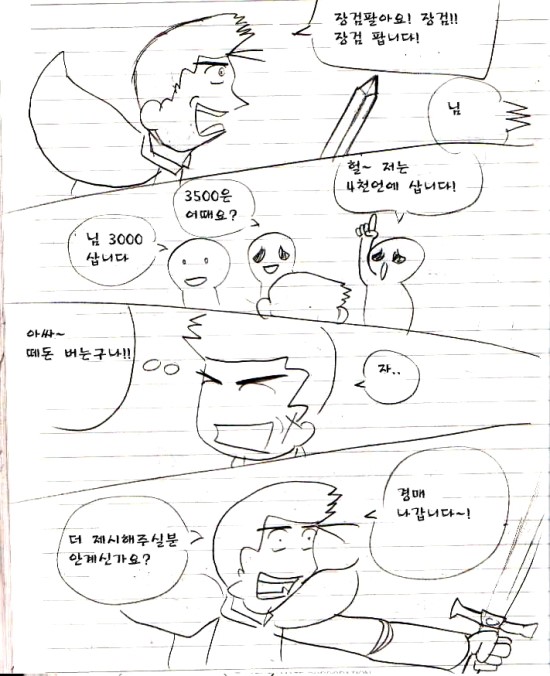 장검팔아요! 장검!!
장검 팝니다!
님
헐~ 저는
4천언에 삽니다!
3500은
어때요?
님 3000
삽니다
아싸~
떼돈 버는구나!!
자..
경매
나갑니다~!
더 제시해주실분
안계신가요?